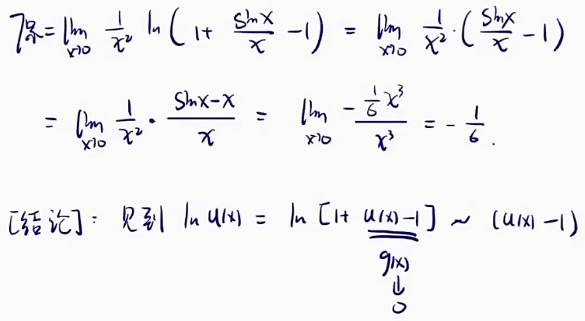 原=lim x→0 1/x² ln(1+ sinx/x -1) = lim x→0 1/x²·(sinx/x -1)
= lim x→0 1/x² · sinx-x/x = lim x→0 -1/6 x³/x³ = -1/6.
[结论]: 见到 ln u(x) = ln [1+ u(x)-1] ~ (u(x)-1)
g(x)
↓
0